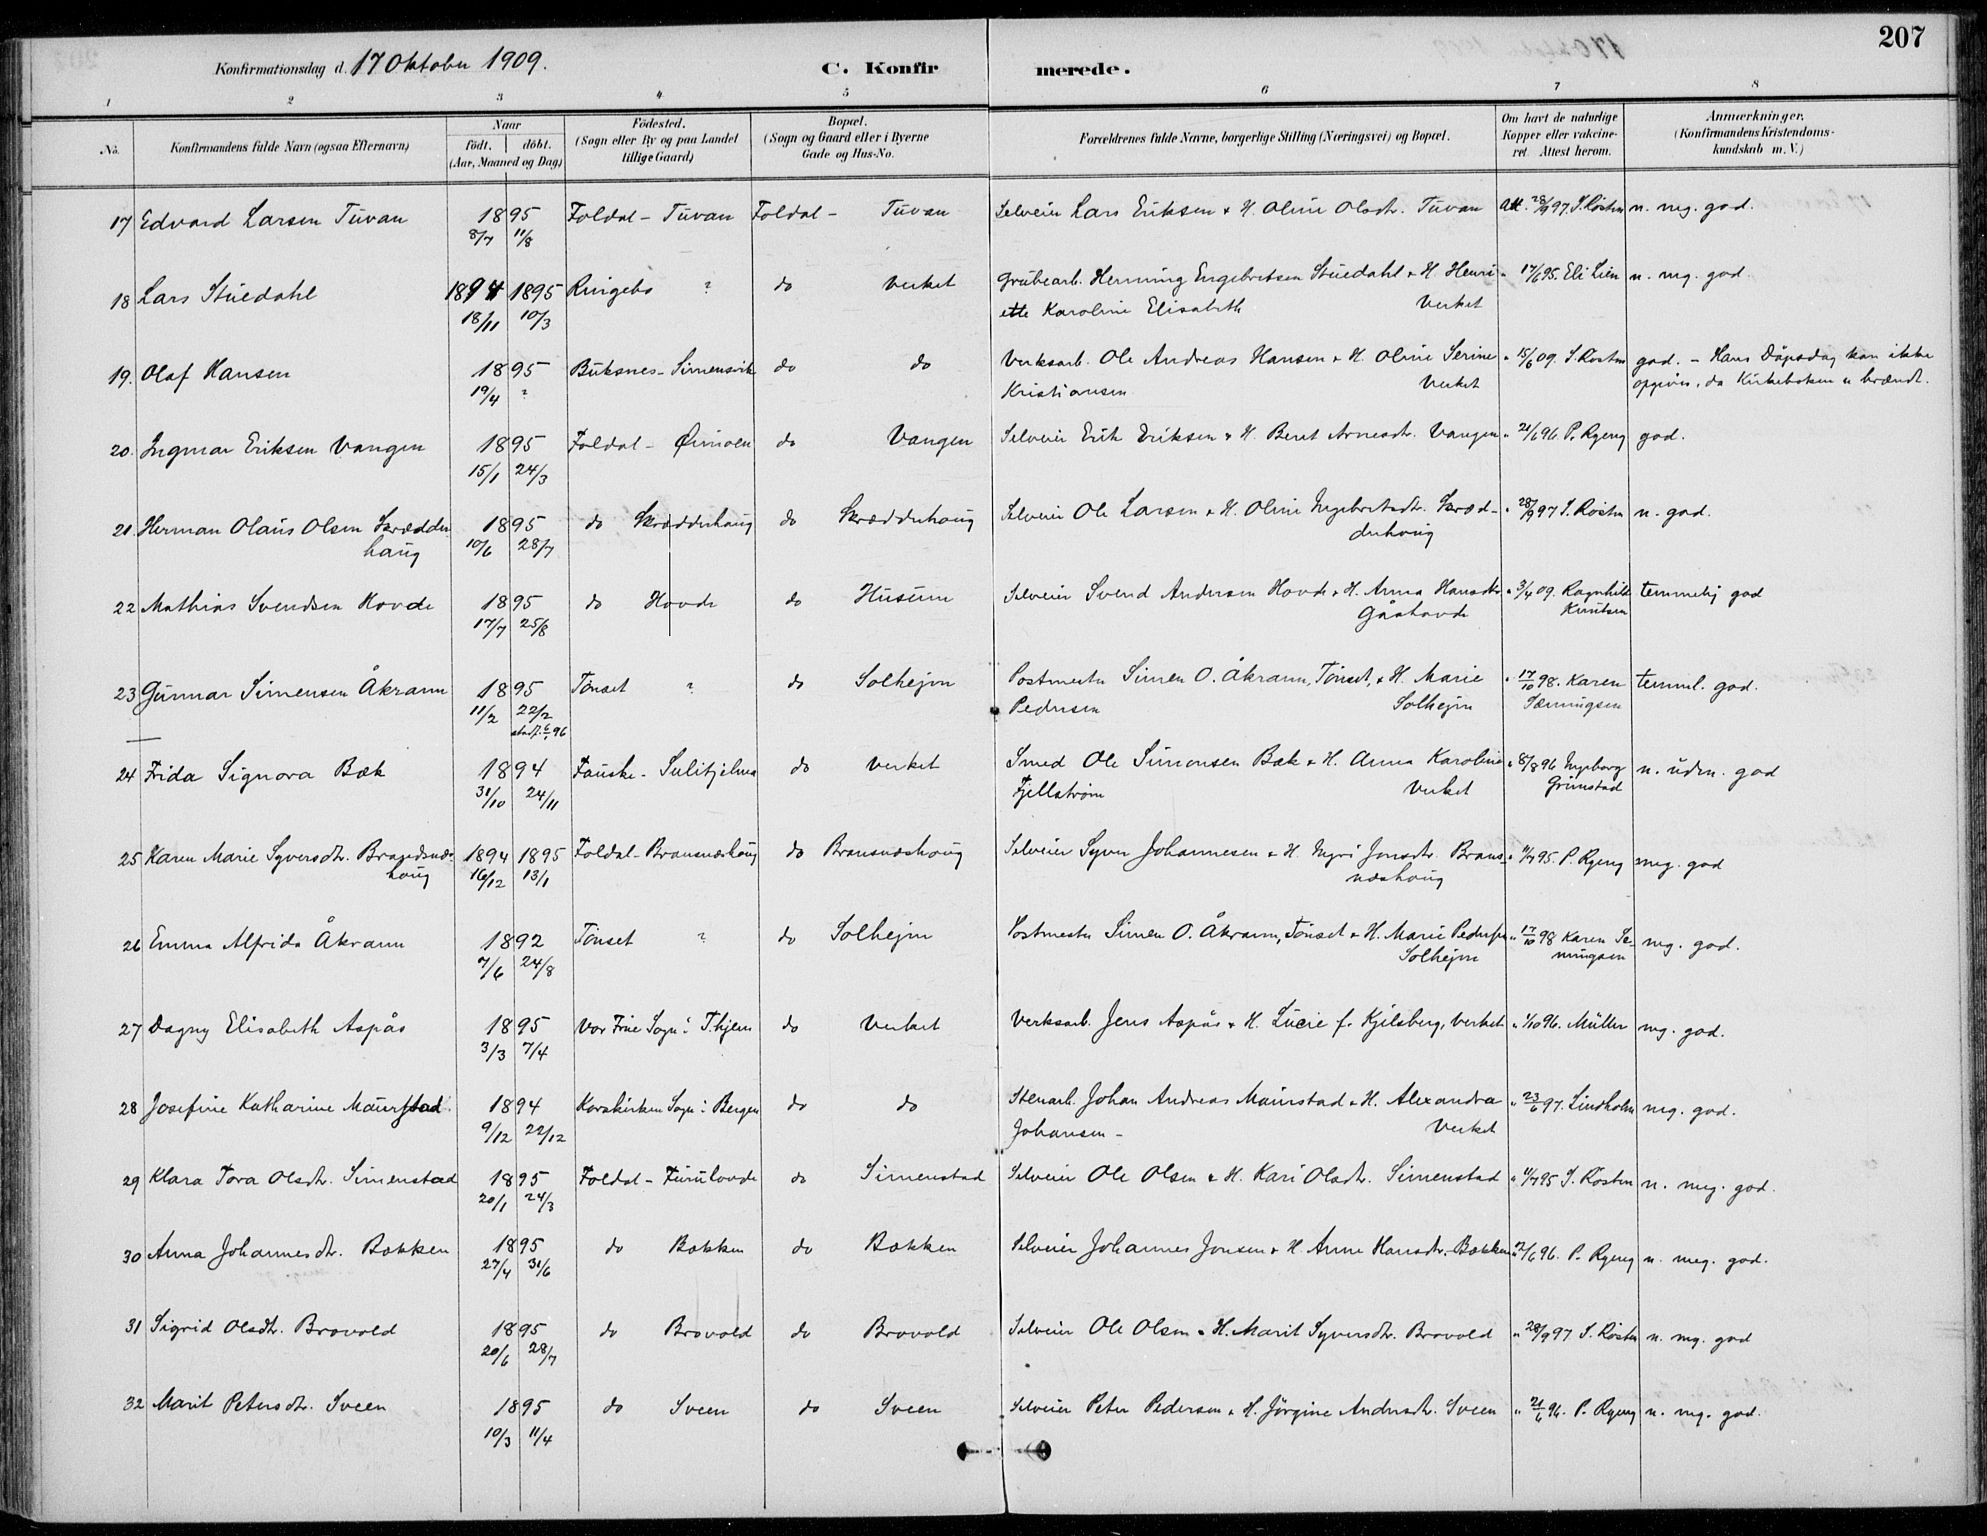 207
Konfirmationsdag d. 17 Oktober 1909. C. Konfirmerede.
1 2 3 4 5 6 7 8
No. Konfirmandens fulde Navn (ogsaa Efternavn) Naar født. døbt. (Aar, Maaned og Dag) Fødested. (Sogn eller By og paa Landet tillige Gaard) Bopæl. (Sogn og Gaard eller i Byerne Gade og Hus-No. Forældrenes fulde Navne, borgerlige Stilling (Næringsvei) og Bopæl. Om havt de naturlige Kopper eller vakcineret. Attest herom. Anmærkninger. (Konfirmandens Kristendomskundskab m. V.)
17 Edvard Larsen Tuvan 1895 Foldal - Tuvan Foldal - Tuvan Selveier Lars Eriksen & H. Oline Olsdtr. Tuvan Att. 28/9 97. S. Rosten n. meg. god.
8/7 11/8
18 Lars Stuedahl 1894 1895 Ringebo ? do Verket Grubearb. Henning Engebretsen Stuedahl & H. Henri- " 17/6 95. Eli Lien n. meg. god.
18/11 10/3 ette Karoline Elisabeth Verket
19. Olaf Hansen 1895 Buksnes - Simensvik do do Verksarb. Ole Andreas Hansen & H. Oline Serine " 15/6 09. S. Rosten god. - Hans Døpsdag kan ikke
19/4 ? Kristiansen Verket opgives, da Kirkeboken er brændt.
20. Ingmar Eriksen Vangen 1895 Foldal - Øimoen do Vangen Selveier Erik Eriksen & H. Beret Arnesdtr. Vangen " 21/6 96 P. Ryeng god.
15/1 24/3
21. Herman Olaus Olsen Skrædder 1895 do Skrædderhaug do Skrædderhoug Selveier Ole Larsen & H. Oline Ingebretsdtr. Skræd- " 28/9 97 S. Rosten n. god.
haug 10/6 28/7 derhoug
22 Mathias Svendsen Hovde 1895 do Hovde do Husum Selveier Svend Andersen Hovde & H. Anna Hansdtr " 3/4 09. Ragnhild temmelig god
17/7 25/8 Gåshovde Knutsen
23 Gunnar Simensen Åkrann 1895 Tønset ? do Solhejm Postmester Simen O. Åkrann, Tønset, & H. Marie " 17/10 98. Karen temml. god.
11/2 22/2 Pedersen Solhejm Sæmingsen
stadf. 6/1 96
24 Frida Signora Bæk 1894 Fauske - Sulitjelma do Verket Smed Ole Simonsen Bæk & H. Anna Karoline " 8/8 96 Ingeborg n. udm. god
31/10 24/11 Fjellstrøm Verket Grimstad
25 Karen Marie Syversdtr. Brandsnæs- 1894 1895 Foldal - Bransnæshoug do Bransnæshoug Selveier Syver Johannesen & H. Ingri Jonsdtr. Brans- " 11/7 95. P. Ryeng meg. god
houg 16/12 13/1 næshoug
26 Emma Alfrida Åkrann 1892 Tønset ? do Solhejm Postmester Simen O. Åkrann, Tønset & H. Marie Pedersen " 17/10 98 Karen Sæ- mg. god.
7/6 24/8 Solhejm mingsen
27 Dagny Elisabeth Aspås 1895 Vor Frue Sogn i T.hjem do Verket Verksarb. Jens Aspås & H. Lucie f. Kjelsberg, Verket " 1/10 96. Müller mg. god.
3/3 7/4
28 Josefine Katharine Maurstad 1894 Korskirken Sogn i Bergen do do Stenarb. Johan Andreas Maurstad & H. Alexandra " 23/6 97. Lindholm mg. god.
9/12 22/12 Johansen - Verket
29 Klara Tora Olsdtr. Simenstad 1895 Foldal - Furulovde do Simenstad Selveier Ole Olsen & H. Kari Olsdtr. Simenstad " 11/7 95 S. Rosten n. meg. god.
20/1 24/3
30 Anna Johannesdtr. Bakken 1895 do Bakken do Bakken Selveier Johannes Jonsen & H. Anne Hansdtr. Bakken " 21/6 96. P. Ryeng n. meg. god.
27/4 31/6
31 Sigrid Olsdtr. Brovold 1895 do Brovold do Brovold Selveier Ole Olsen & H. Marit Syversdtr. Brovold " 28/9 97 S. Rosten n. mg. god
20/6 28/7
32 Marit Petersdtr. Sveen 1895 do Sveen do Sveen Selveier Peter Pedersen & H. Jørgine Andersdtr. Sveen " 21/6 96. P. Ryeng n. mg. god.
10/3 11/4